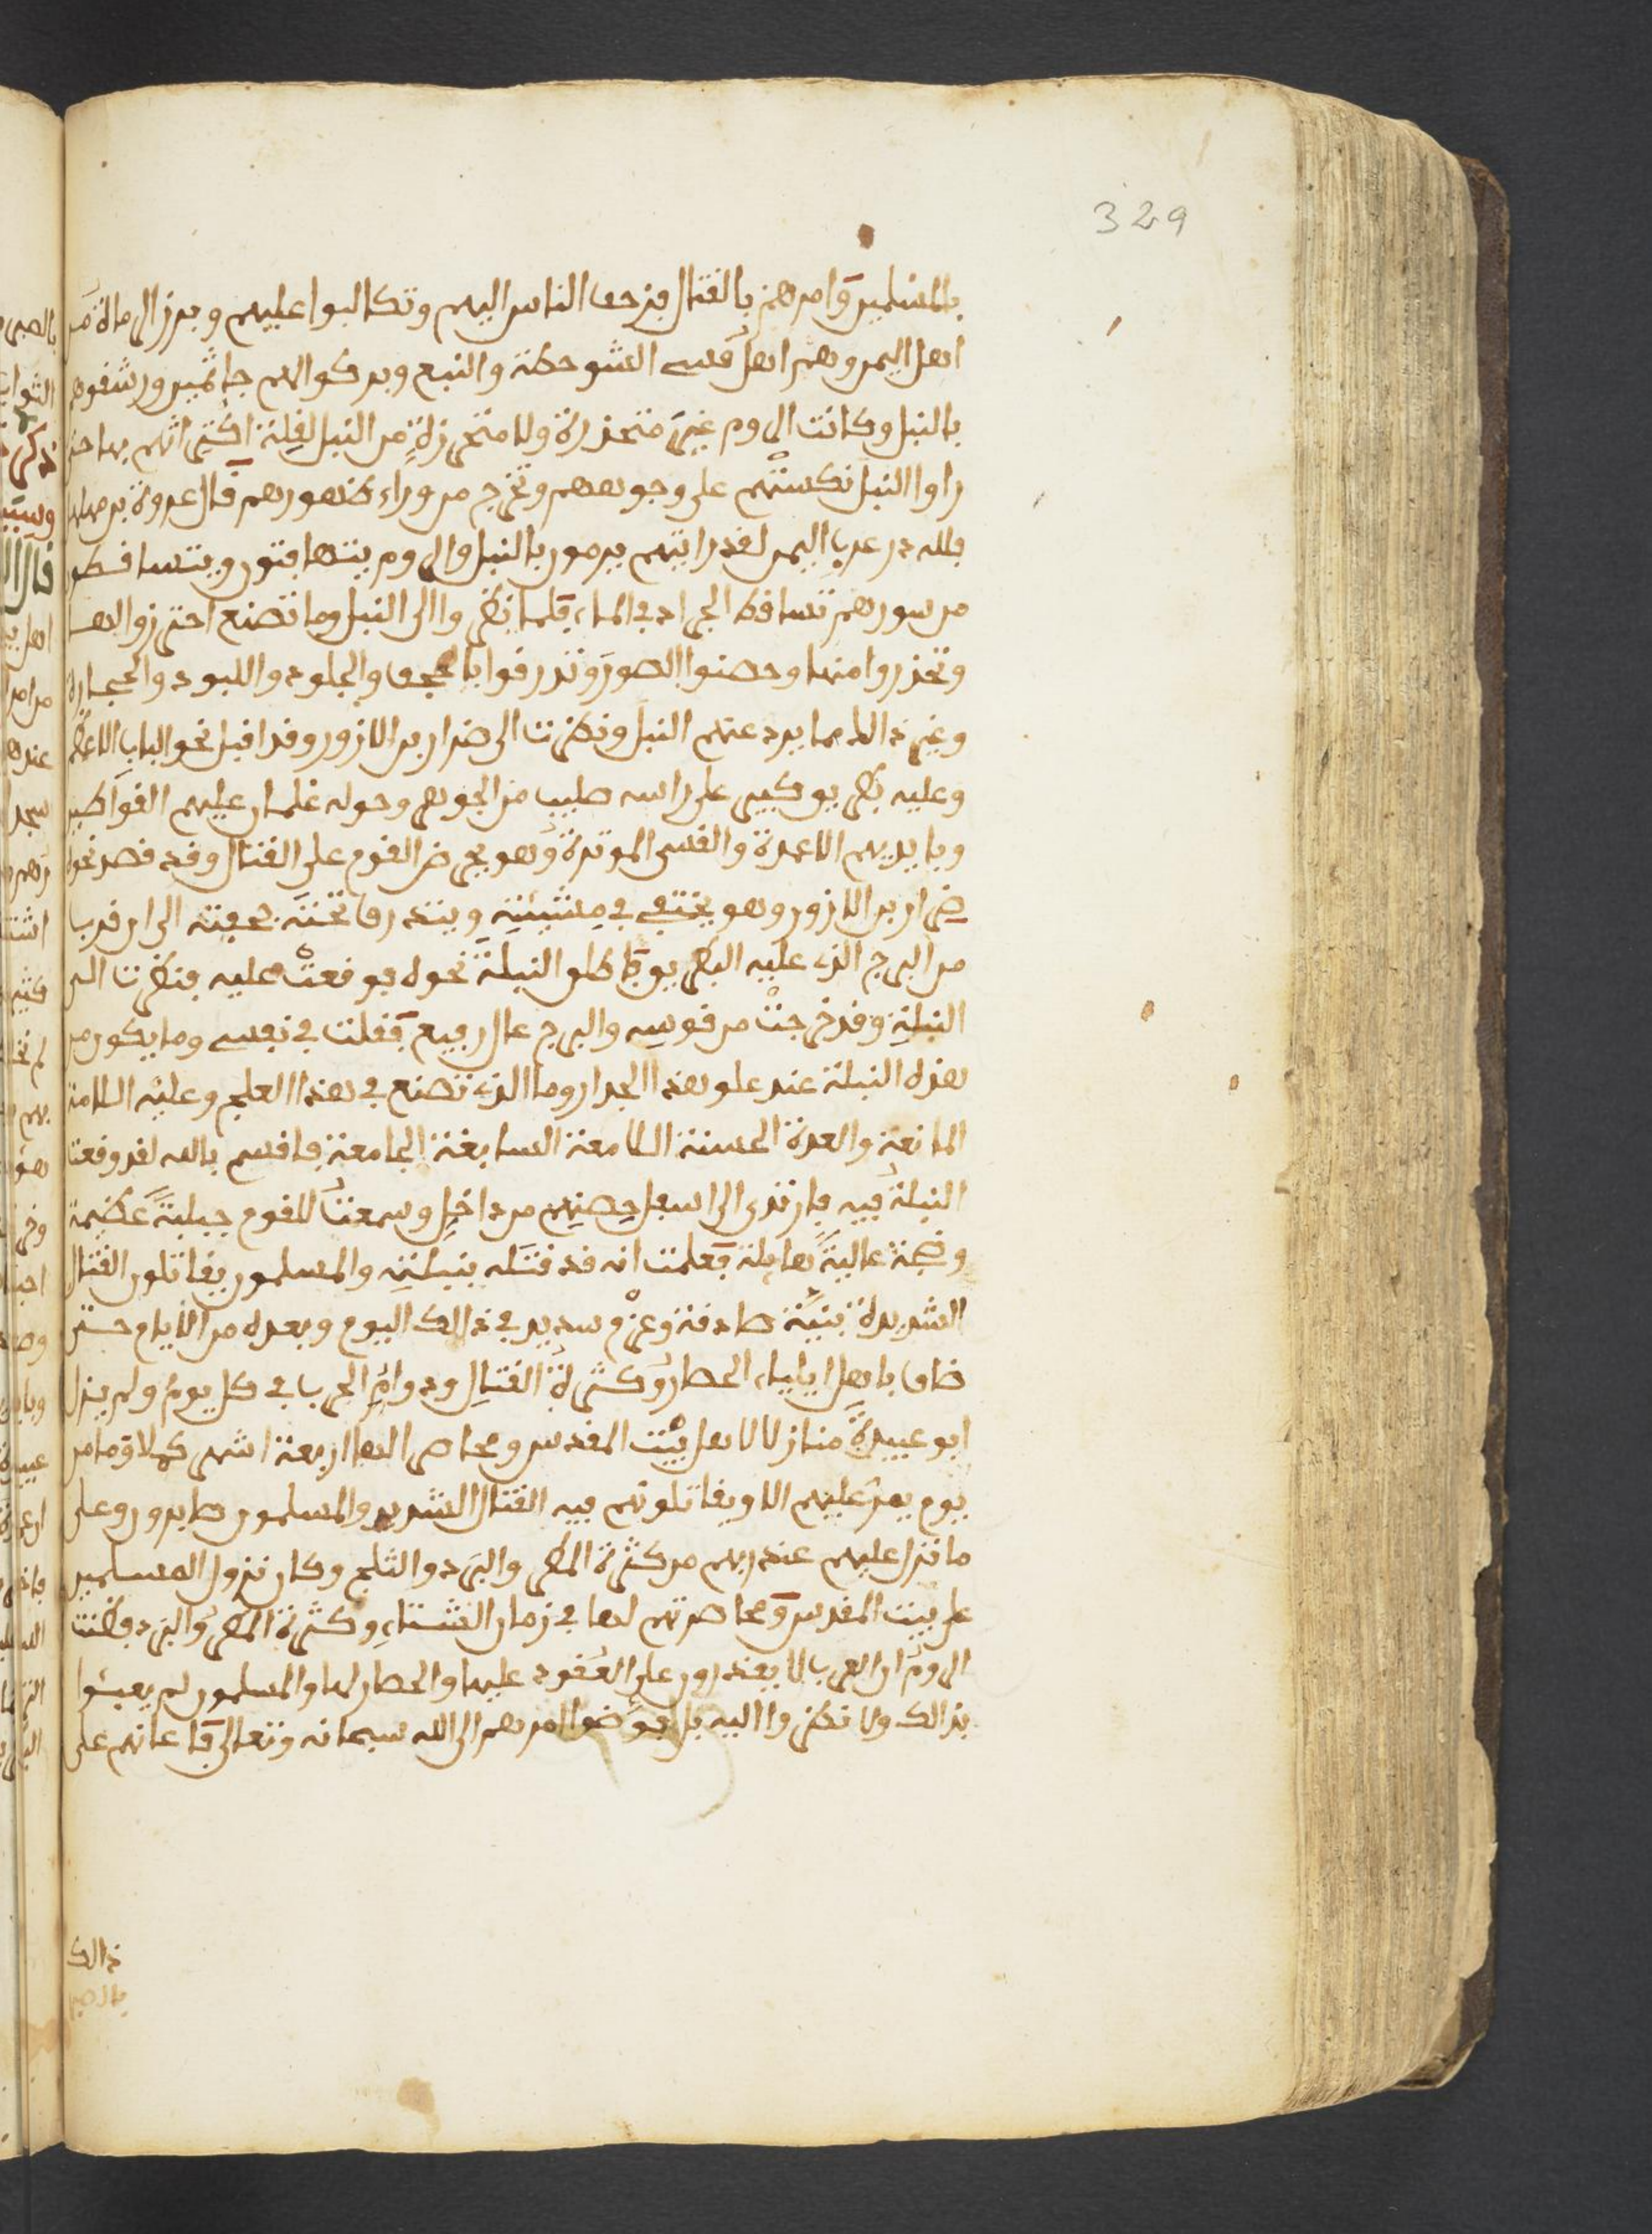 329
بالمسلمين وامرهم بالقتال فزحف الناس اليهم وتكالبوا عليهم وبرز الرماة من
اهل اليمن وهم اهل قسي الشوحطة والنبع وبركوا لهم جاثمين ورشقوهم
بالنبل وكانت الروم غير متحذرة ولا متحرزة من النبل لقلة اكتراثهم بها حتى
راوا النبل نكستهم على وجوههم وتخرج من وراء ظهورهم قال عروة بن مهلهل
فلله در عرب اليمن لقد رايتهم يرمون بالنبل والروم يتهافتون ويتساقطون
من سورهم تساقط الجراد في الماء فلما نظروا الى النبل وما تصنع احترزوا لها
وتحذروا منها وحصنوا الصور وتدرقوا بالحجف والجلود واللبود والحجارة
وغير ذالك مما يرد عنهم النبل ونظرت الى ضرار بن الازور وقد اقبل نحو الباب الاعظم
وعليه بطريق كبير على راسه صليب من الجوهر وحوله غلمان عليهم
وبايديهم الاعمدة والقسي الموترة وهو يحرض القوم على القتال وقد قصد نحوه
ضرار بن الازور وهو يختفي في مشيته ويتدرق تحت حجفته الى ان قرب
من البرج الذي عليه البطريق فاطلق النبلة نحوه فوقعت عليه فنظرت الى
النبلة وقد خرجت من قوسه والبرج عال رفيع فقلت في نفسي وما يكون من
هذه النبلة عند علو هذا الجدار وما الذي تصنع في هذا العلج وعليه اللامة
المانعة والعدة الحسنة اللامعة السابغة الجامعة فاقسم بالله لقد وقعت
النبلة فيه فارتدى الى اسفل حصنهم من داخل وسمعت للقوم جلبة عظيمة
وضجة عالية هايلة فعلمت انه قد قتله بنبلته والمسلمون يقاتلون القتال
الشديد بنية صادقة وعزم سديد في ذالك اليوم وبعده من الايام حتى
ضاق باهل ايلياء الحصار وكثرة القتال ودوام الحرب في كل يوم ولم يزل
ابو عبيدة منازلا لاهل بيت المقدس ومحاصر لها اربعة اشهر كملا وما من
يوم يمر عليهم الا ويقاتلونهم فيه القتال الشديد والمسلمون صابرون على
ما نزل عليهم عند ربهم من كثرة المطر والبرد والثلج وكان نزول المسلمين
على بيت المقدس ومحاصرتهم لها في زمان الشتاء وكثرة المطر والبرد فظنت
الروم ان العرب لا يقدرون على القعود عليها والحصار لها والمسلمون لم يعبئوا
بذالك ولا نظروا اليه بل فوضوا امرهم الى الله سبحانه وتعالى فاعانهم على
ذالك